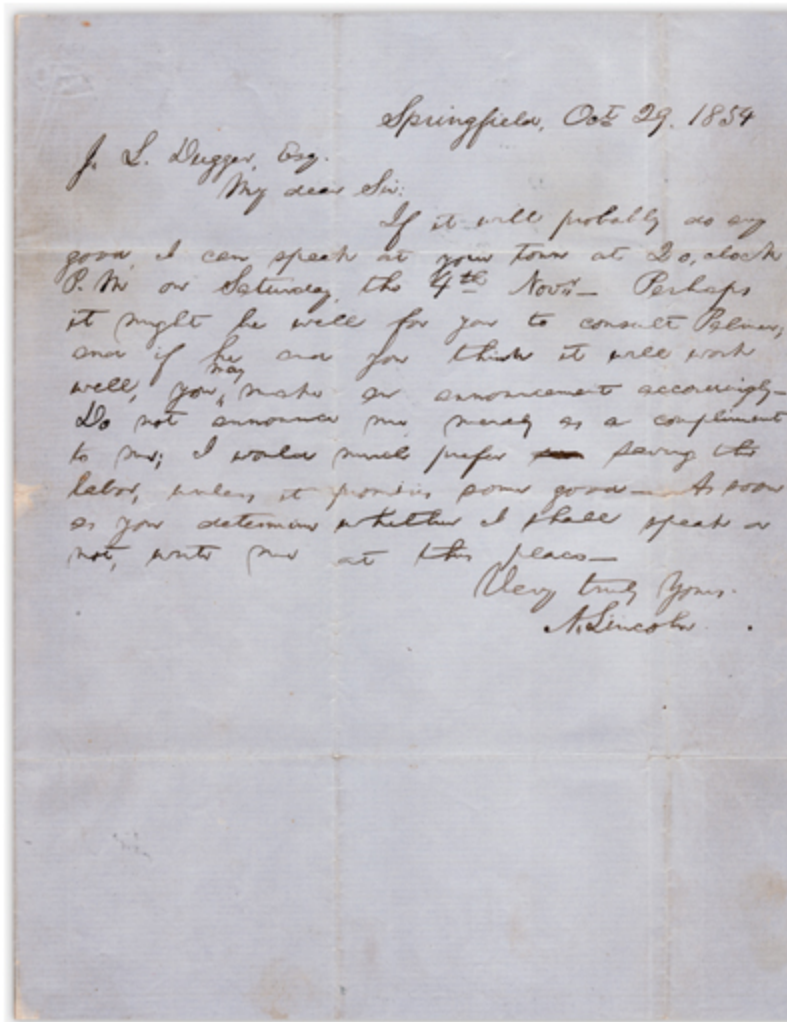 Springfield, Oct. 29. 1854
J. L. Dugger, Esq.
My dear Sir:
If it will probably do any
good, I can speak at your town at 2 o,clock
P.M on Saturday, the 4th Novr— Perhaps
it might be well for you to consult Palmer,
and if he and you think it will work
may
well, you make an announcement accordingly—
Do not announce me merely as a compliment
to me; I would much prefer saving the
labor, unless it promises some good— As soon
as you determine whether I shall speak or
not, write me at this place—
Very truly Yours.
A. Lincoln